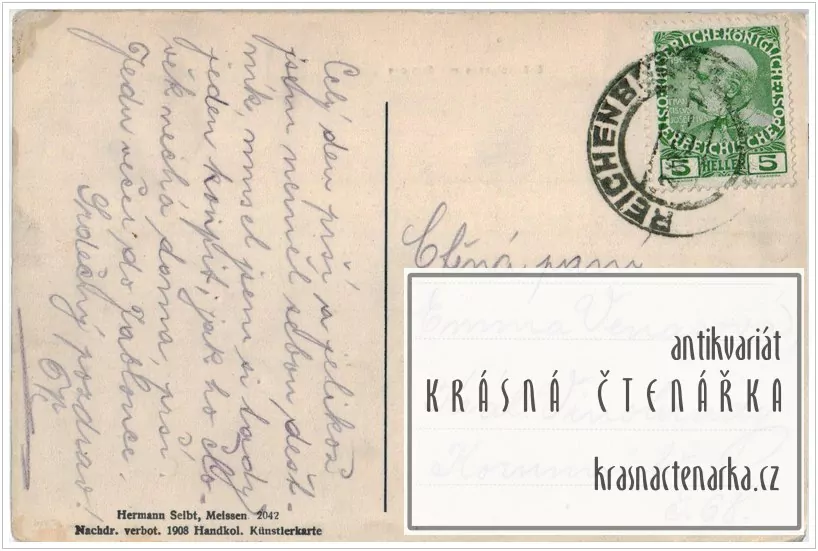 Celý den prší a jelikož
jsem neměl sebou dešt-
ník, musel jsem si tady
jeden koupit, jak ho člo-
věk nechá doma, prší.
Jedu večer do Jablonce.
Srdečný pozdrav!
Hermann Seibt, Meissen 2042
Nachdr. verbot. 1908 Handkol. Künstlerkarte
KAISERLICHEKÖNIGLICHE
OESTERREICHISCHE POST
5 HELLER 5
REICHENB
Ctěná paní
Emma
antikvariát
KRÁSNÁ ČTENÁŘKA
krasnactenarka.cz